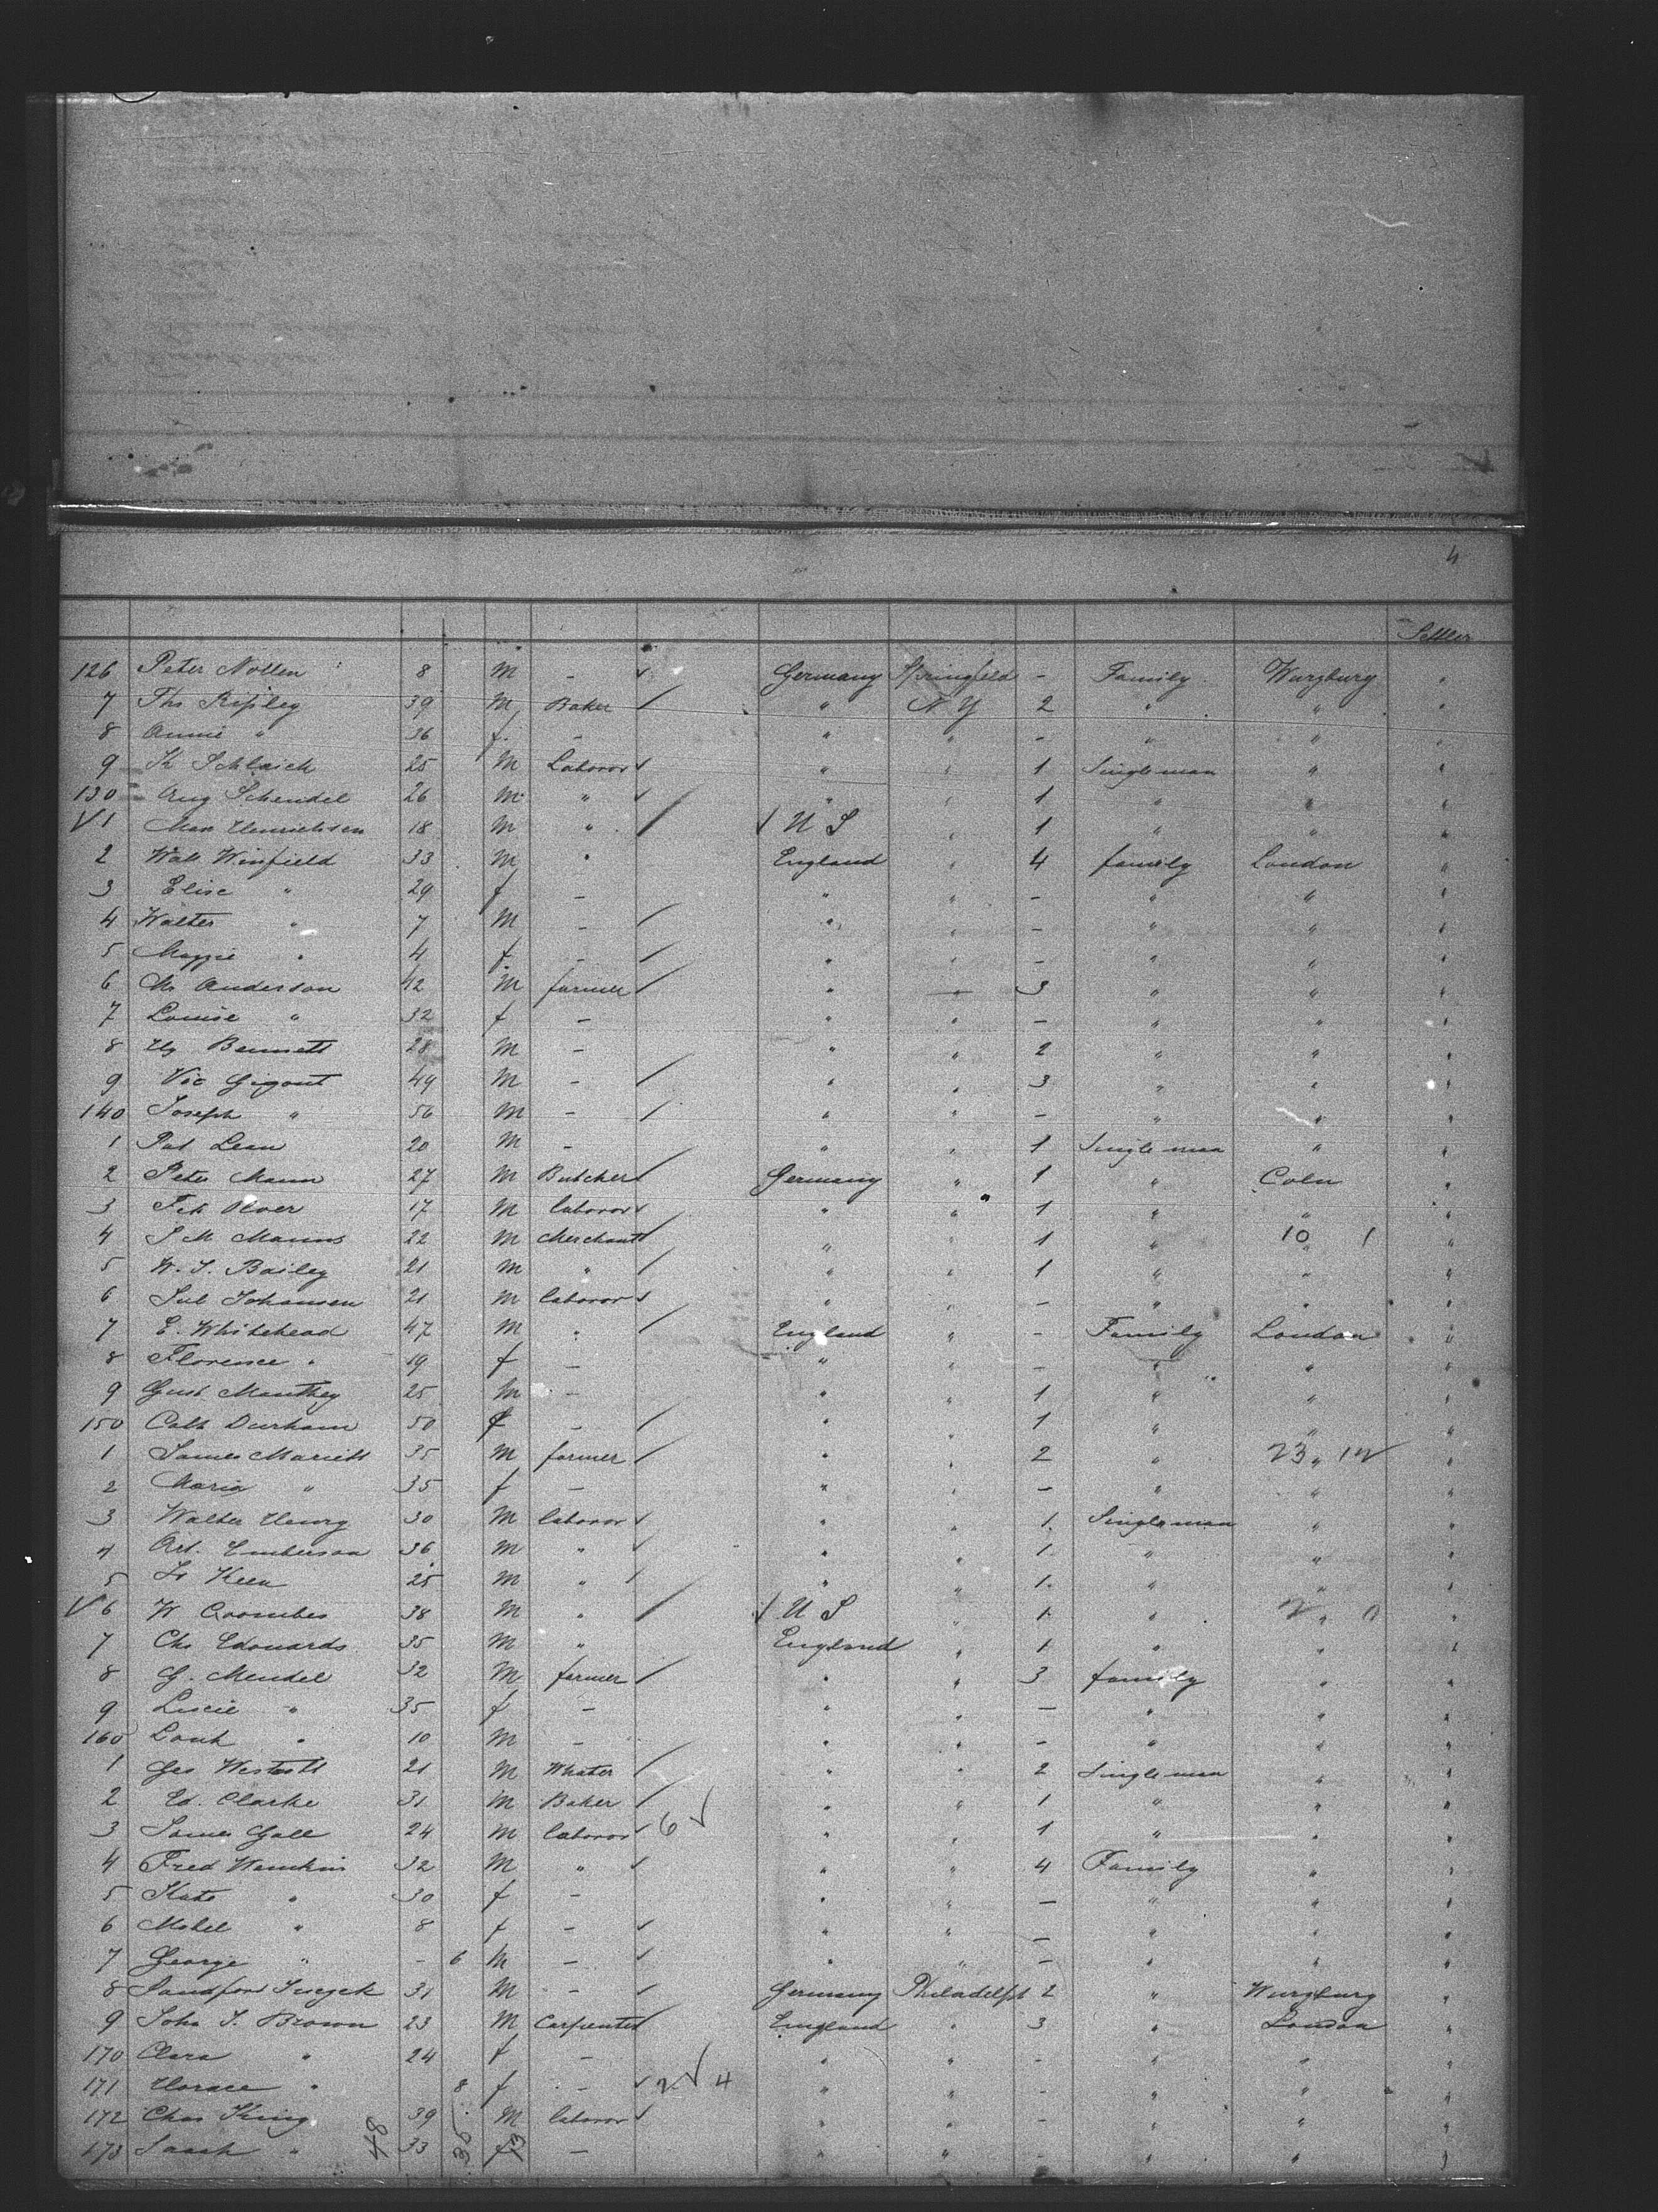 4
Settler
126 Peter Nollen 8 M – Germany Springfield – Family Wurzburg "
7 Ths Ripley 39 M Baker " N Y 2 " " "
8 Annie " 36 f. – " " – " " "
9 Schlaich 25 M Laboror " " 1 Single man " "
130 Aug Schendel 26 M " " " 1 " " "
√ 1 Max Henrichsen 18 M " √ U S " 1 " " "
2 Walt Winfield 33 M " England " 4 family London "
3 Elise " 29 f – " " – " " "
4 Walter " 7 M – " " – " " "
5 Maggie " 4 f. – " " – " " "
6 Anderson 42 M farmer " " 3 " " "
7 Louise " 32 f – " " – " " "
8 Hy Bennett 28 M – " " 2 " " "
9 Vic Gigout 49 M – " " 3 " " "
140 Joseph " 56 M – " " – " " "
1 Pat Lean 20 M – " " 1 Single man " "
2 Peter Mann 27 M Butcher Germany " 1 " Coln "
3 17 M laboror " " 1 " " "
4 S M Manns 22 M Merchant " " 1 " 10 1 "
5 W. S. Bailey 21 M " " " 1 " " "
6 Jul Johansen 21 M laboror " " – " " "
7 E. Whitehead 47 M " England " – Family London "
8 Florence " 19 f – " " – " " "
9 Gust Manthey 25 M – " " 1 " " "
150 Cath Durham 50 f – " " 1 " " "
1 James Mariett 35 M farmer " " 2 " 23 12 "
2 Maria " 35 f – " " – " " "
3 Walter Henry 30 M laboror " " 1 Single man " "
4 Art. Emberson 36 M " " " 1 " " "
5 Keen 25 M " " " 1 " " "
√ 6 W Coombes 38 M " √ U S " 1 " 2 0 "
7 Chs Edouards 35 M " England " 1 " " "
8 G. Mendel 32 M farmer " " 3 family " "
9 " 35 f – " " – " " "
160 " 10 M – " " – " " "
1 Geo 21 M " " 2 Single man " "
2 Ed. Clarke 31 M Baker " " 1 " " "
3 James Gall 24 M laboror 6 √ " " 1 " " "
4 Fred 32 M " " " 4 Family " "
5 Kate " 30 f – " " – " " "
6 Mabel " 8 f – " " – " " "
7 George " – 6 M – " " – " " "
8 31 M – Germany Philadelph 2 " Wurzburg "
9 John S. Brown 23 M Carpenter England " 3 " London "
170 Clara " 24 f – " " – " " "
171 Horace " 8 f – 2 √ 4 " " – " " "
172 Chas King 39 M laboror " " – " " "
173 Sarah " 33 f – " " – " " "
48 35 13